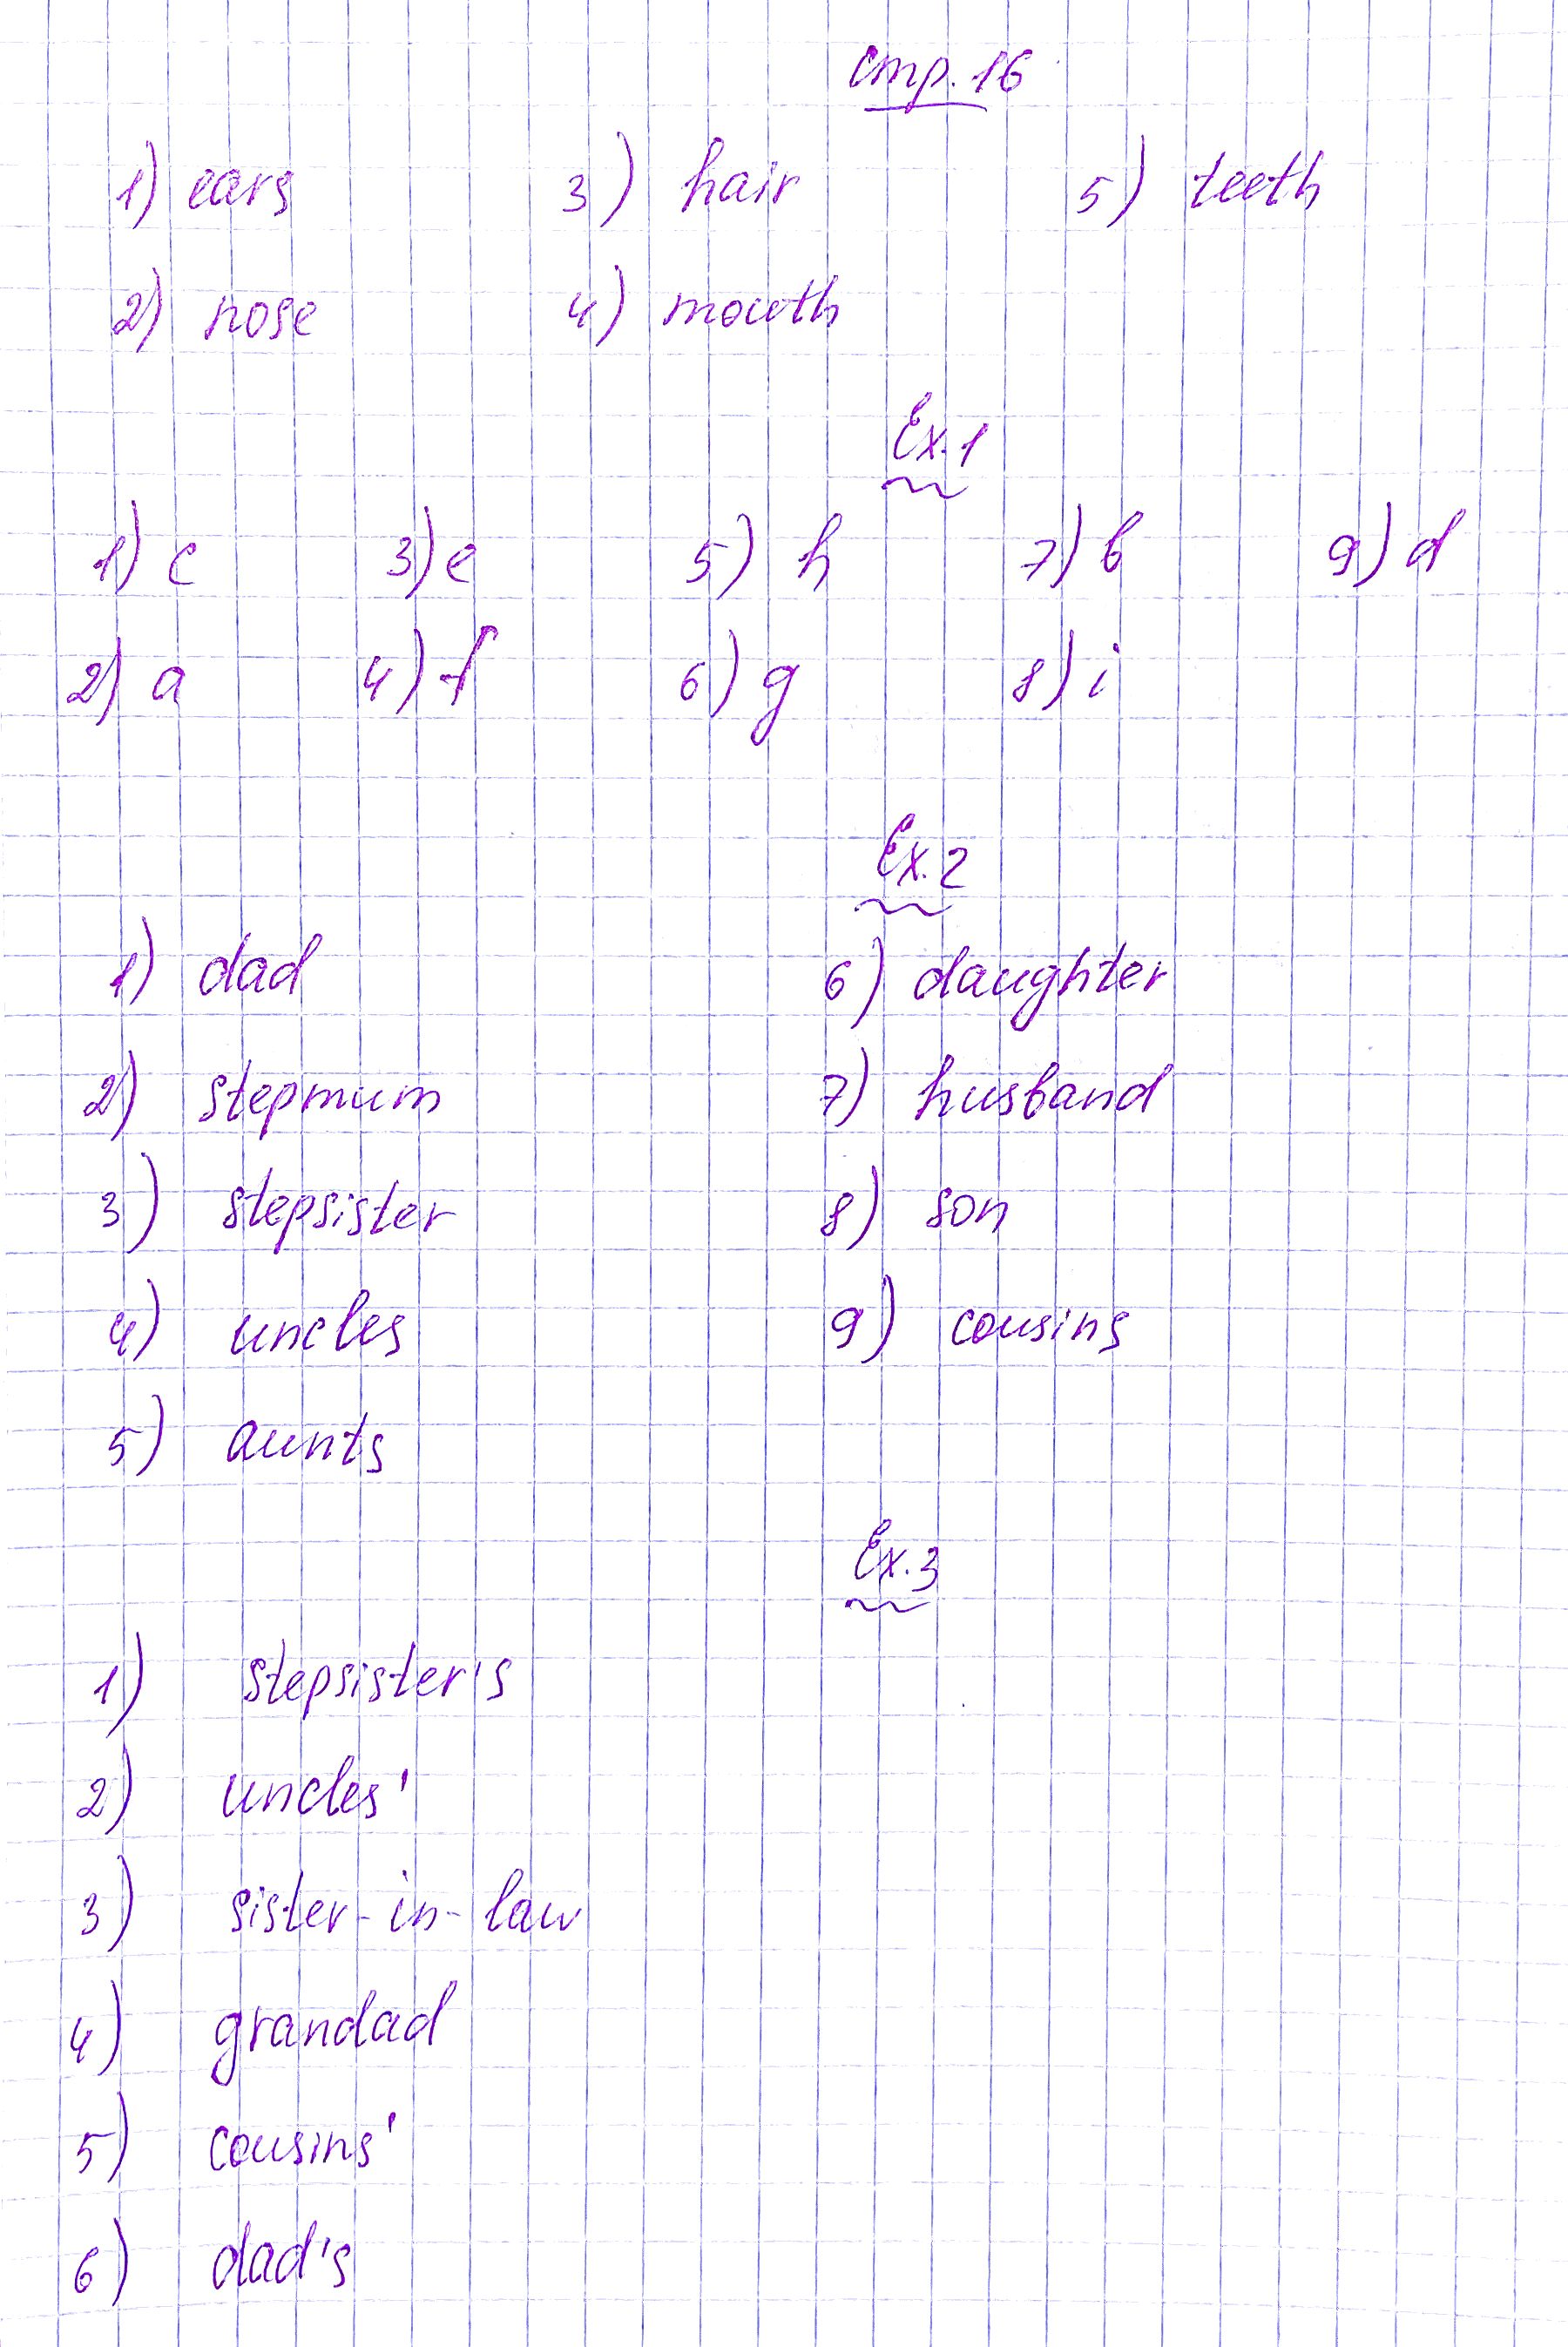 стр. 16
1) ears 3) hair 5) teeth
2) nose 4) mouth
Ex. 1
1) c 3) e 5) h 7) b 9) d
2) a 4) f 6) g 8) i
Ex. 2
1) dad 6) daughter
2) stepmum 7) husband
3) stepsister 8) son
4) uncles 9) cousins
5) aunts
Ex. 3
1) stepsister's
2) uncles'
3) sister-in-law
4) grandad
5) cousins'
6) dad's